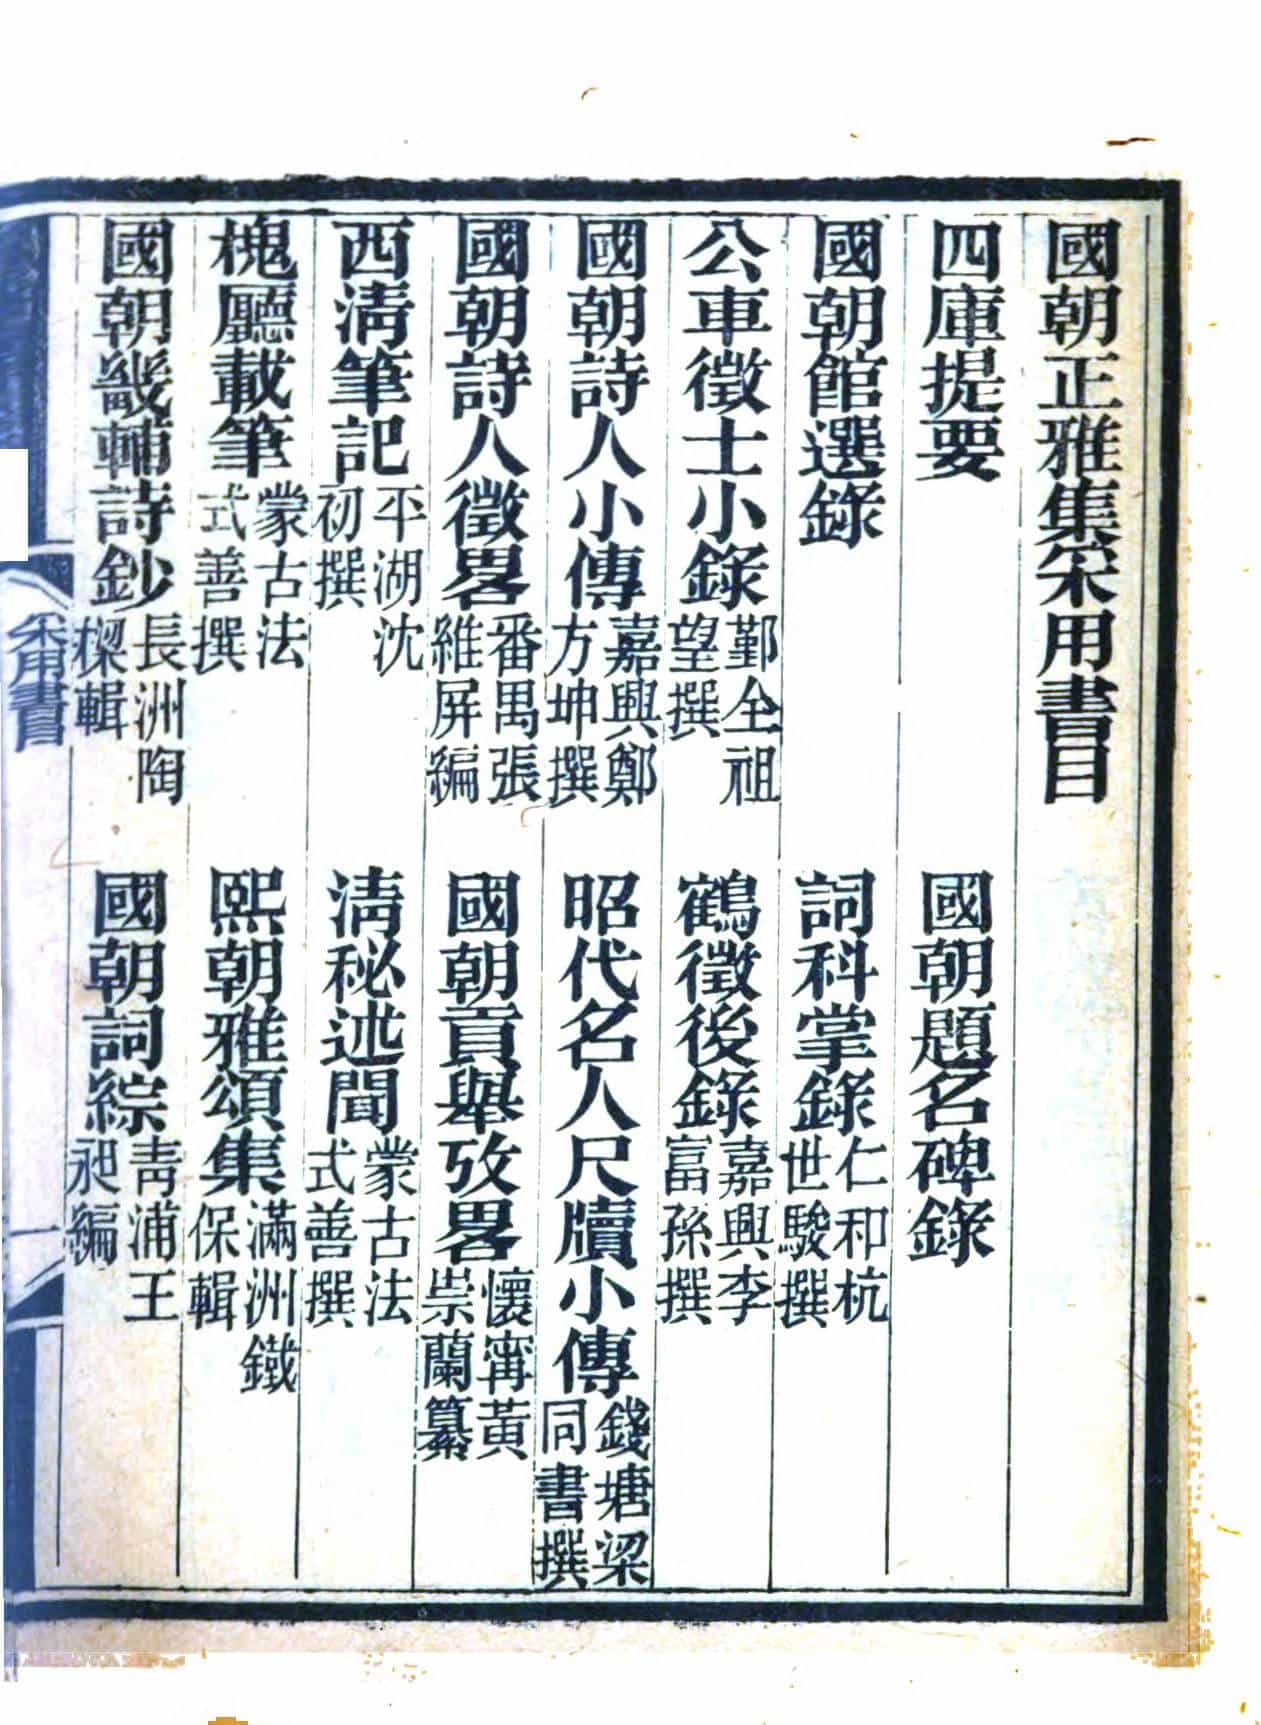 國朝正雅集采用書目
四庫提要　國朝題名碑錄
國朝館選錄　詞科掌錄仁和杭世駿撰
公車徵士小錄鄞全祖望撰　鶴徵後錄嘉興李富孫撰
國朝詩人小傳嘉興鄭方坤撰　昭代名人尺牘小傳錢塘梁同書撰
國朝詩人徵畧番禺張維屏編　國朝貢舉攷畧懷甯黃崇蘭纂
西淸筆記平湖沈初撰　淸秘述聞蒙古法式善撰
槐廳載筆蒙古法式善撰　熙朝雅頌集滿洲鐵保輯
國朝畿輔詩鈔長洲陶樑輯　國朝詞綜靑浦王昶編
采用書目
一